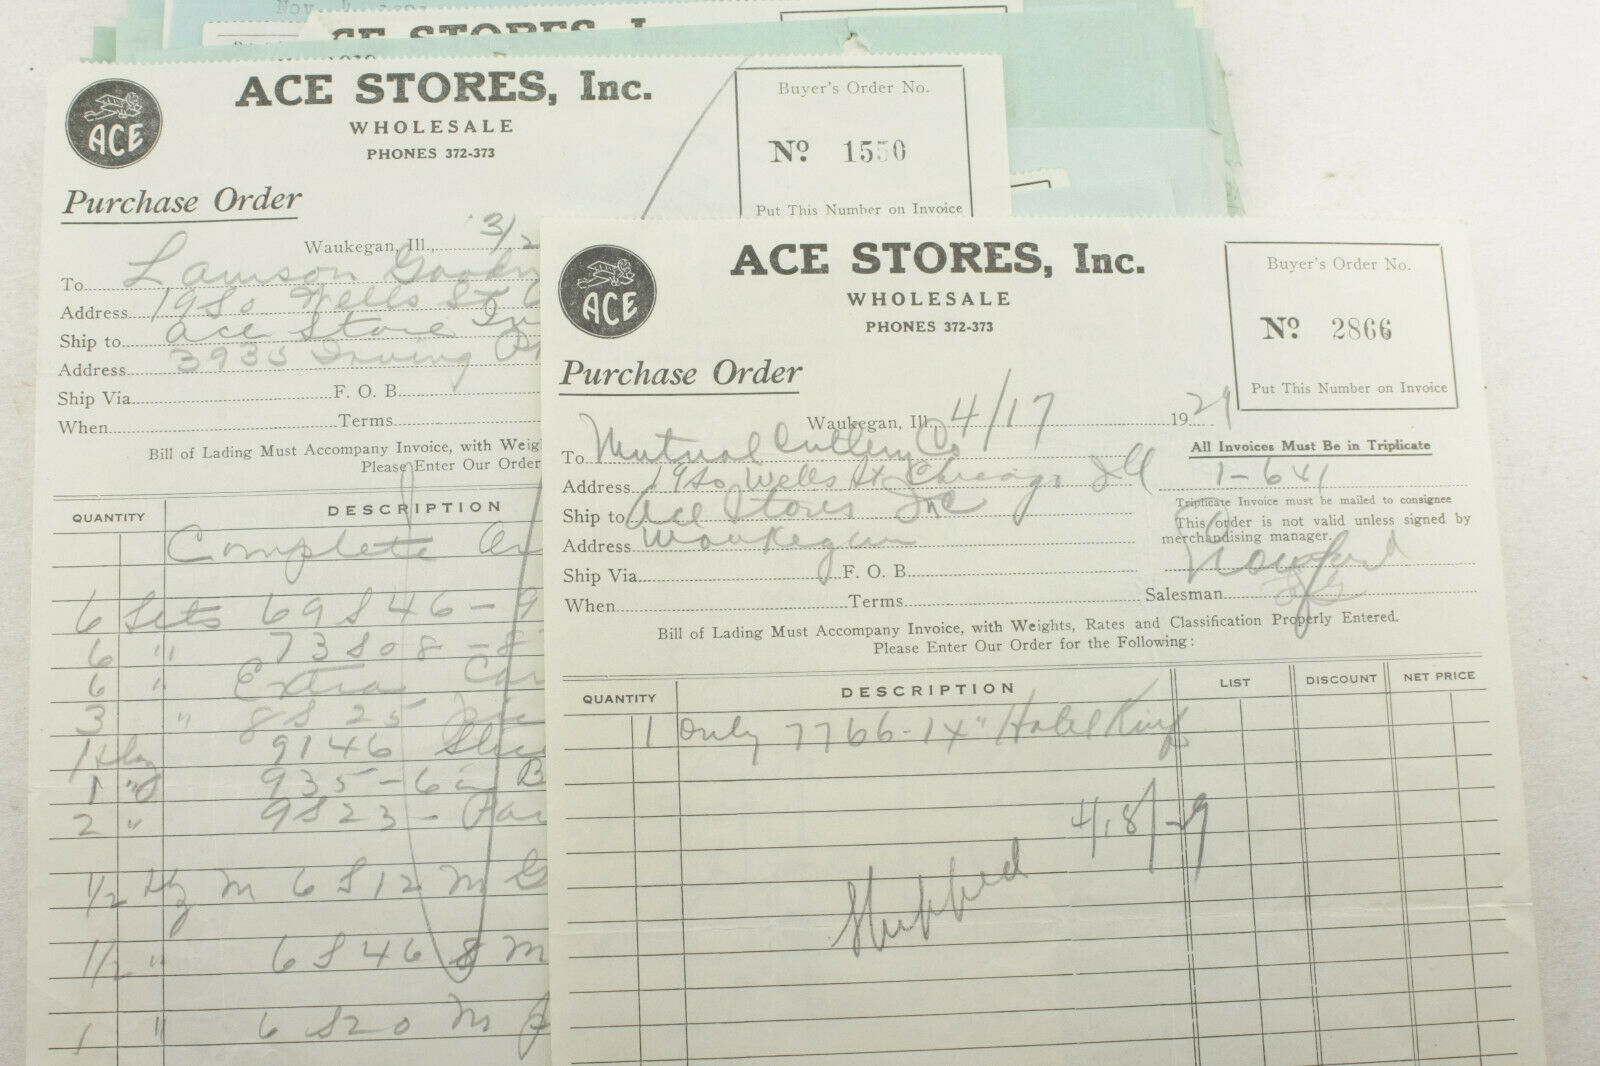 Nov.
ACE STORES, I
ACE
ACE STORES, Inc.
WHOLESALE
PHONES 372-373
Buyer's Order No.
No 1550
Put This Number on Invoice
Purchase Order
Waukegan, Ill., 3/2
To Lamson
Address 1950 Wells St
Ship to Ace Store In
Address 3935 Irving P
Ship Via F. O. B.
When Terms
Bill of Lading Must Accompany Invoice, with Weig
Please Enter Our Order
QUANTITY DESCRIPTION
Complete
6 Sets 69S46-9
6 " 73S08-8
6 " Extra Car
3 " 8S25
9146 Slic
1 " 935-6 in B
2 " 9S23-
1/2 Dz M 6S12 M G
1/2 " 6S46 8 M
1 " 6S20 M
ACE
ACE STORES, Inc.
WHOLESALE
PHONES 372-373
Buyer's Order No.
No 2866
Put This Number on Invoice
Purchase Order
Waukegan, Ill. 4/17 1929
To Mutual Cutlery Co
Address 1950 Wells St Chicago Ill
Ship to Ace Stores Inc
Address Waukegan
Ship Via F. O. B.
When Terms
All Invoices Must Be in Triplicate
1-641
Triplicate Invoice must be mailed to consignee
This order is not valid unless signed by
merchandising manager.
Salesman
Bill of Lading Must Accompany Invoice, with Weights, Rates and Classification Properly Entered.
Please Enter Our Order for the Following:
QUANTITY DESCRIPTION LIST DISCOUNT NET PRICE
1 Only 7766-14" Hotel
4/18/29
Shipped